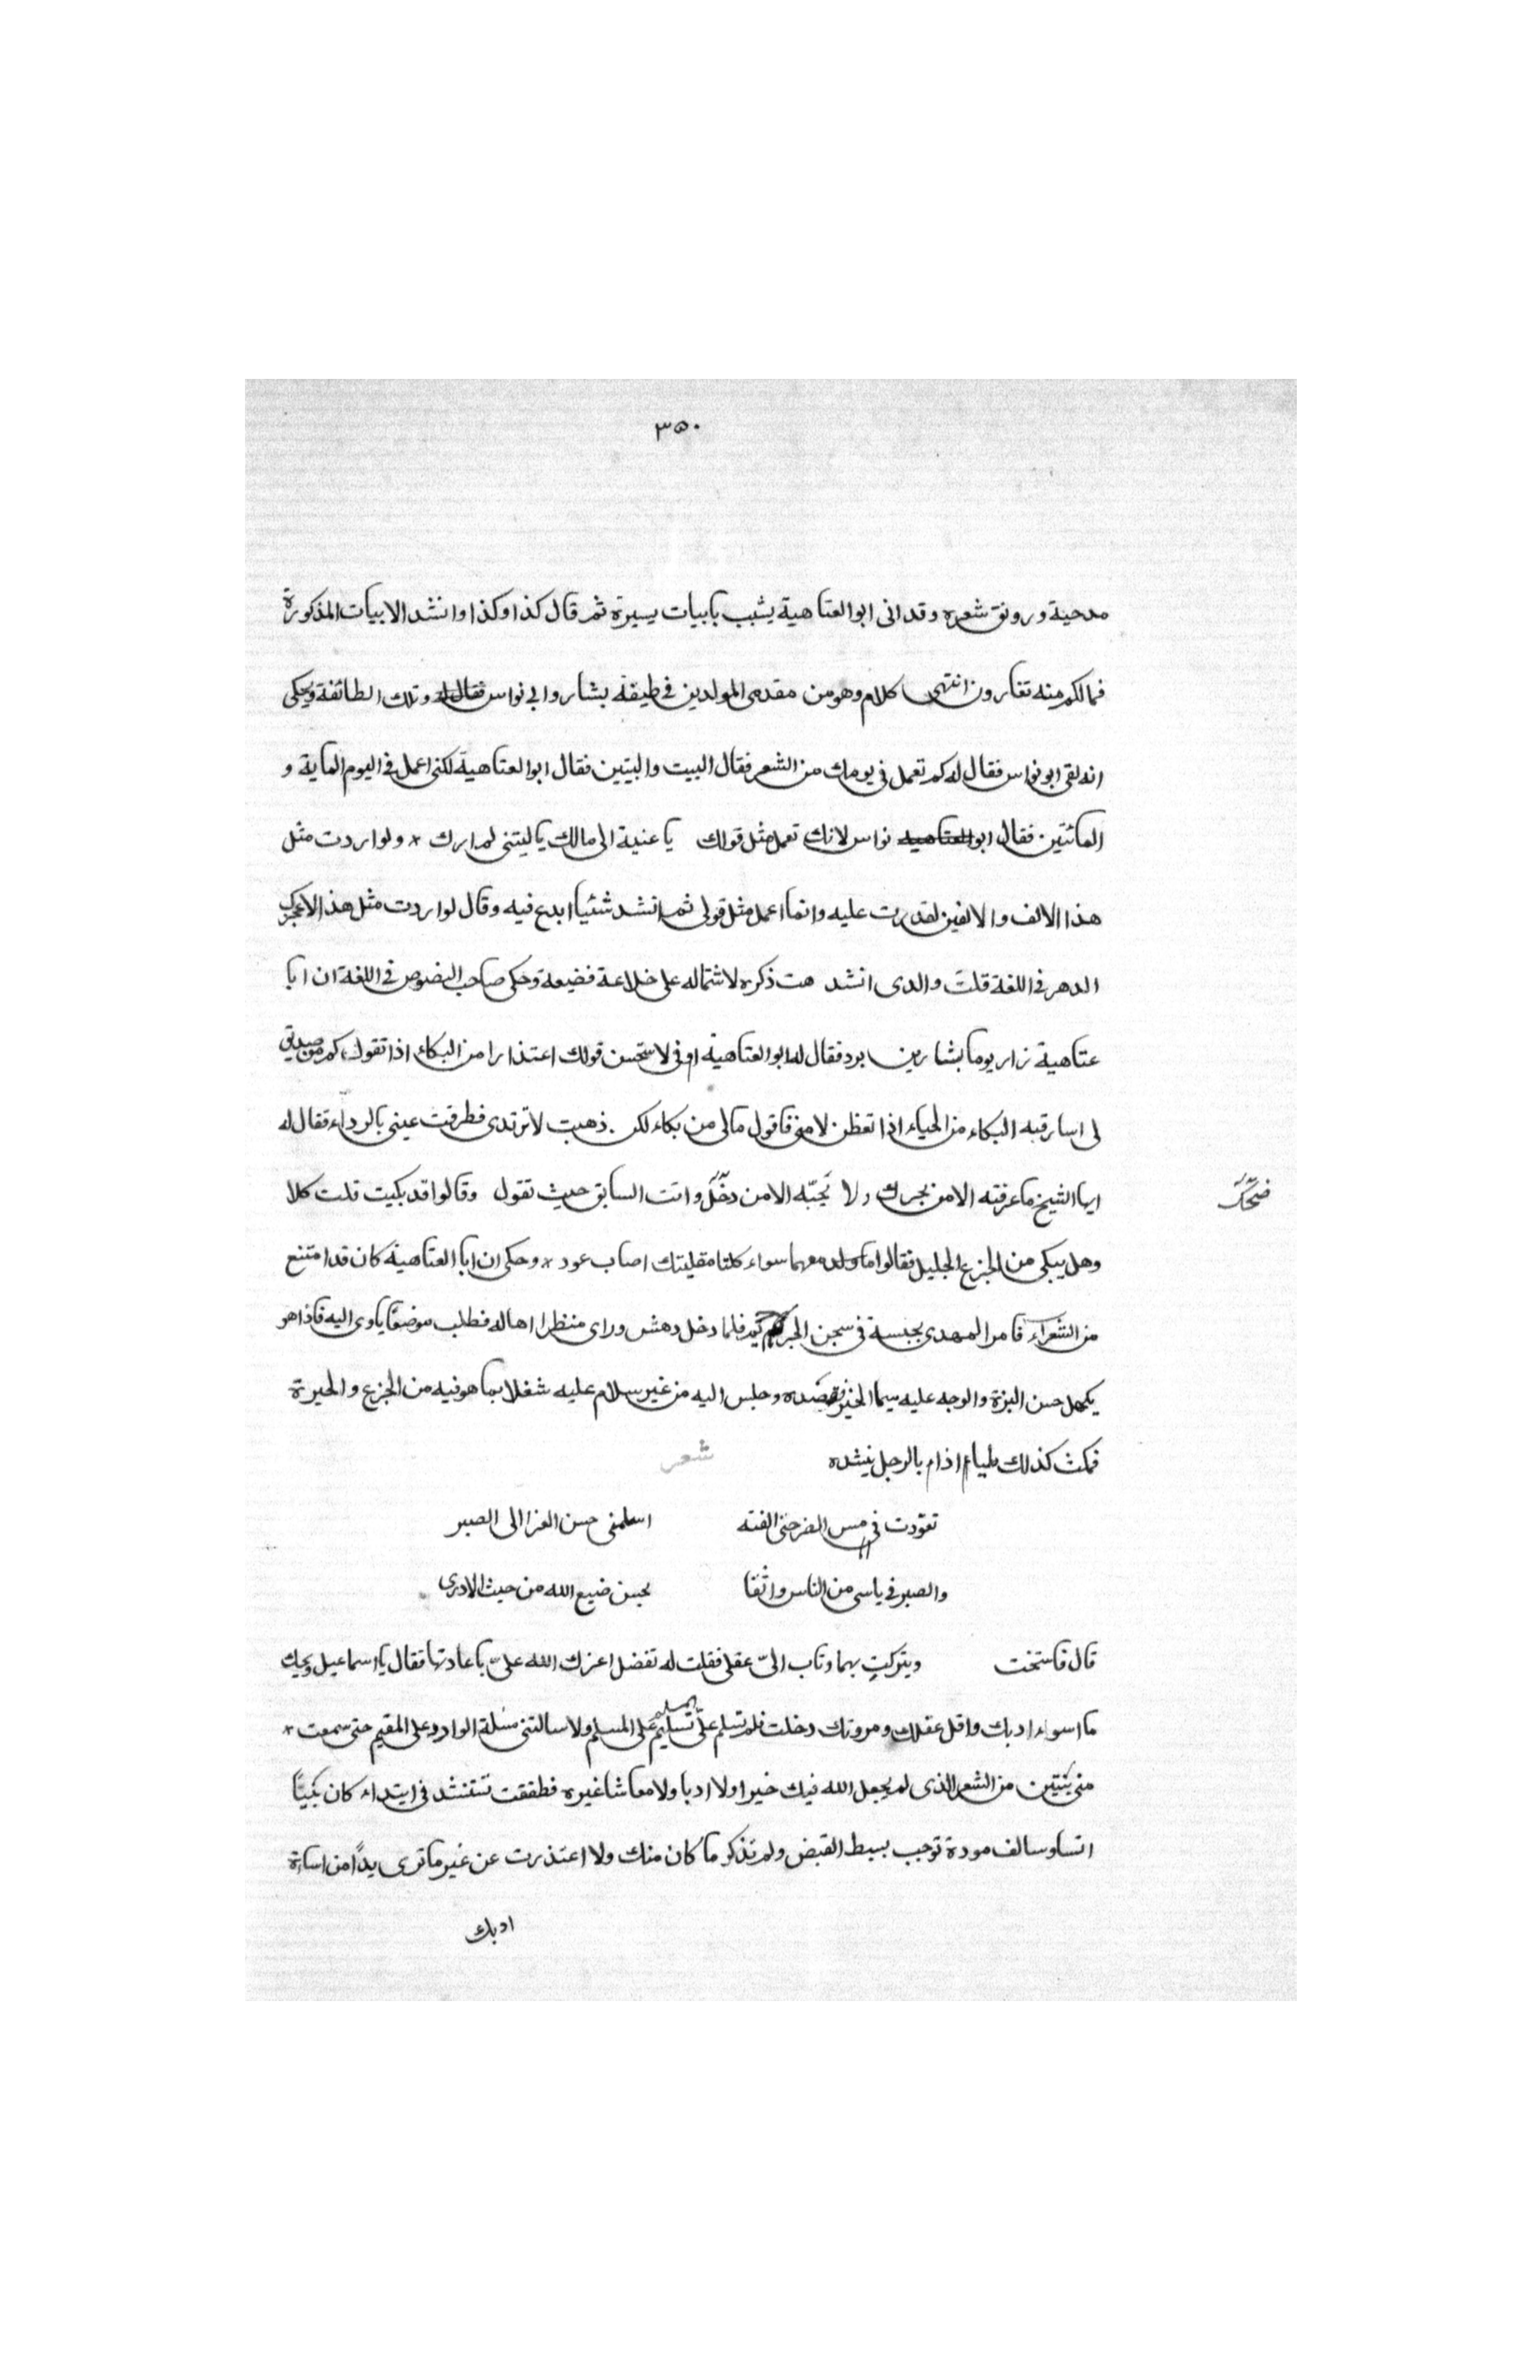 ٣٥٠
مدحية ورونق شعره وقد اتى ابو العتاهية يشبب بابيات يسيرة ثم قال كذا وكذا وانشد الابيات المذكورة
فمالكم منه تغارون انتهى كلام وهو من مقدمى المولدين فى طيفة بشار وابى نواس وتلك الطائفة ويحكى
انه لقى ابو نواس فقال له كم تعمل فى يومك من الشعر فقال البيت والبيتين فقال ابو العتاهية لكنى اعمل فى اليوم الماية و
المائتين فقال ابو نواس لانك تعمل مثل قولك يا عتبة الى مالك ياليتنى لم ارك * ولو اردت مثل
هذا الالف والالفين لقدرت عليه وانما اعمل مثل قولى ثم انشد شئيا ابدع فيه وقال لو اردت مثل هذا لاعجزك
الدهر فى اللغة قلت والدى انشد هت ذكره لاشتماله على خلاعة فضيعة وحكى صاحب النصوص فى اللغة ان ابا
عتاهية زار يوما بشار بن برد فقال له ابو العتاهية انى لاستحسن قولك اعتذارا من البكاء اذا تقول كم من صديق
لى اسارقه البكاء من الحياء اذا تفطن لامنى فاقول مالى من بكاء لكن ذهبت لارتدى فطرفت عينى بالرداء فقال له
ايها الشيخ ما عرفته الا من بحرك ولا نجبّه الا من دخّلك وانت السابق حيث تقول وقالوا قد بكيت قلت كلا
ضحّك
وهل يبكى من الجزع الجليل فقالوا ما لدمعهما سواء كلتا مقليتك اصاب عود * وحكى ان ابا العتاهية كان قد امتنع
من الشعراء فامر المهدى بحبسة فى سجن الجرائم فلما دخل دهش وراى منظرا اهاله فطلب موضعًا ياوى اليه فاذا هو
بكهل حسن البزة والوجه عليه سيما الخير فقصده وجلس اليه من غير سلام عليه شغلا بما هو فيه من الجزع والحيرة
فمكث كذلك مليا اذام بالرجل ينشده شعر
تعوّدت فى مس الضر حتى الفته اسلمنى حسن العزا الى الصبر
والصبر فى ياسى من الناس واثقا بحسن ضيع الله من حيث الادرى
قال فاستخت ويتركت بهما وتاب الىّ عقلى فقلت له تفضل اعزك الله علىّ باعادتها فقال يا اسماعيل ويحك
ما اسوء ادبك واقل عقلك ومروتك دخلت فلم تسلم علىّ تسليم المسلم على المسلم ولا سالتنى مسلة الوارد على المقيم حتى سمعت *
منى بيتين من الشعر الذى لم يجعل الله فيك خيرا ولا ادبا ولا معاشا غيره فطفقت تستنشد فى ابتداء كان بيننا
انسا وسالف مودة توجب بسط القبض ولم تذكر ما كان منك ولا اعتذرت عن غير ما ترى يدًا من اساءة
ادبك